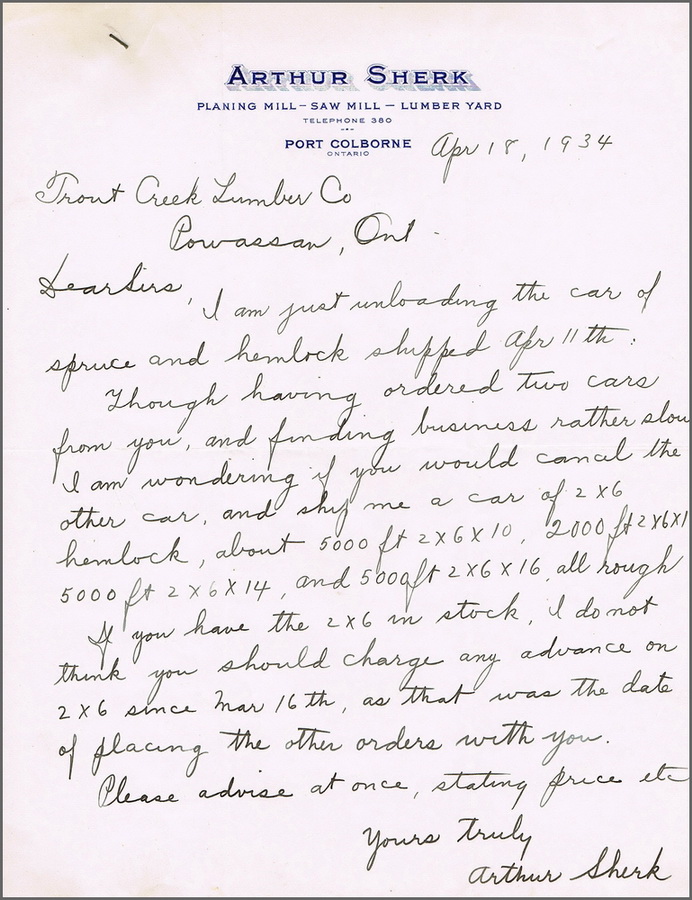 ARTHUR SHERK
PLANING MILL - SAW MILL - LUMBER YARD
TELEPHONE 380
PORT COLBORNE
ONTARIO
Apr 18, 1934
Trout Creek Lumber Co
Powassan, Ont.
Dear Sirs,
I am just unloading the car of
spruce and hemlock shipped Apr 11th.
Though having ordered two cars
from you, and finding business rather slow
I am wondering if you would cancel the
other car, and ship me a car of 2x6
hemlock, about 5000 ft 2x6x10, 2000 ft 2x6x1
5000 ft 2x6x14, and 5000 ft 2x6x16, all rough
If you have the 2x6 in stock, I do not
think you should charge any advance on
2x6 since Mar 16th, as that was the date
of placing the other orders with you.
Please advise at once, stating price etc
Yours truly
Arthur Sherk